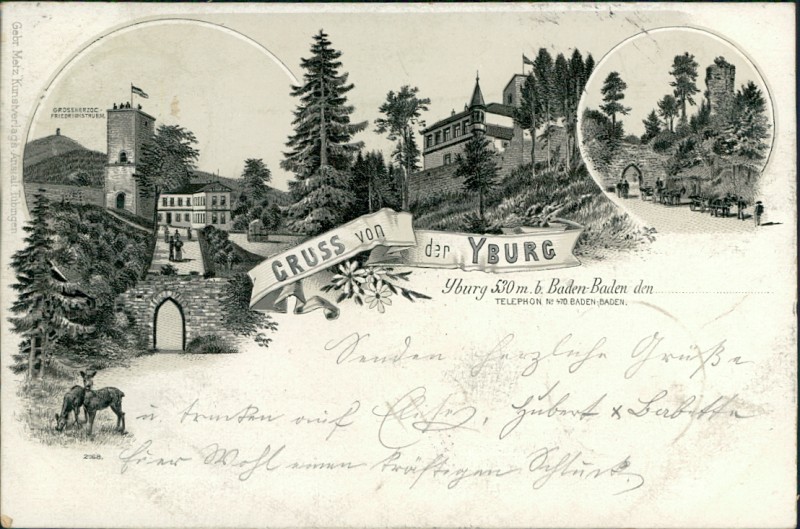 Gebr. Metz Kunstverlags-Anstalt Tübingen
GROSSHERZOG-
FRIEDRICHSTHURM.
GRUSS von der YBURG
Yburg 530 m. b. Baden-Baden den
TELEPHON No 470 BADEN-BADEN.
Senden herzliche Grüße
u. trinken auf Hubert & Babette
Euer Wohl einen kräftigen Schluck.
2168.